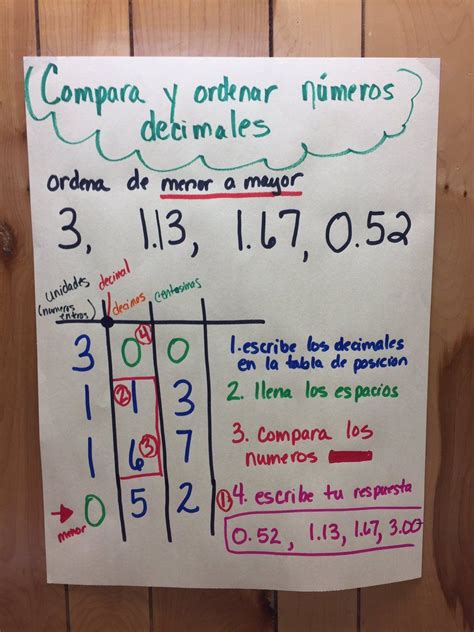 Compara y ordenar números
decimales
ordena de menor a mayor
3, 1.13, 1.67, 0.52
unidades
(numeros
entros)
decimal
decimos
centesimas
3 0 ④ 0
1 ② 1 3
1 6 ③ 7
menor → 0 5 2 ①
1. escribe los decimales
en la tabla de posicion
2. llena los espacios
3. compara los
numeros
4. escribe tu respuesta
0.52, 1.13, 1.67, 3.00